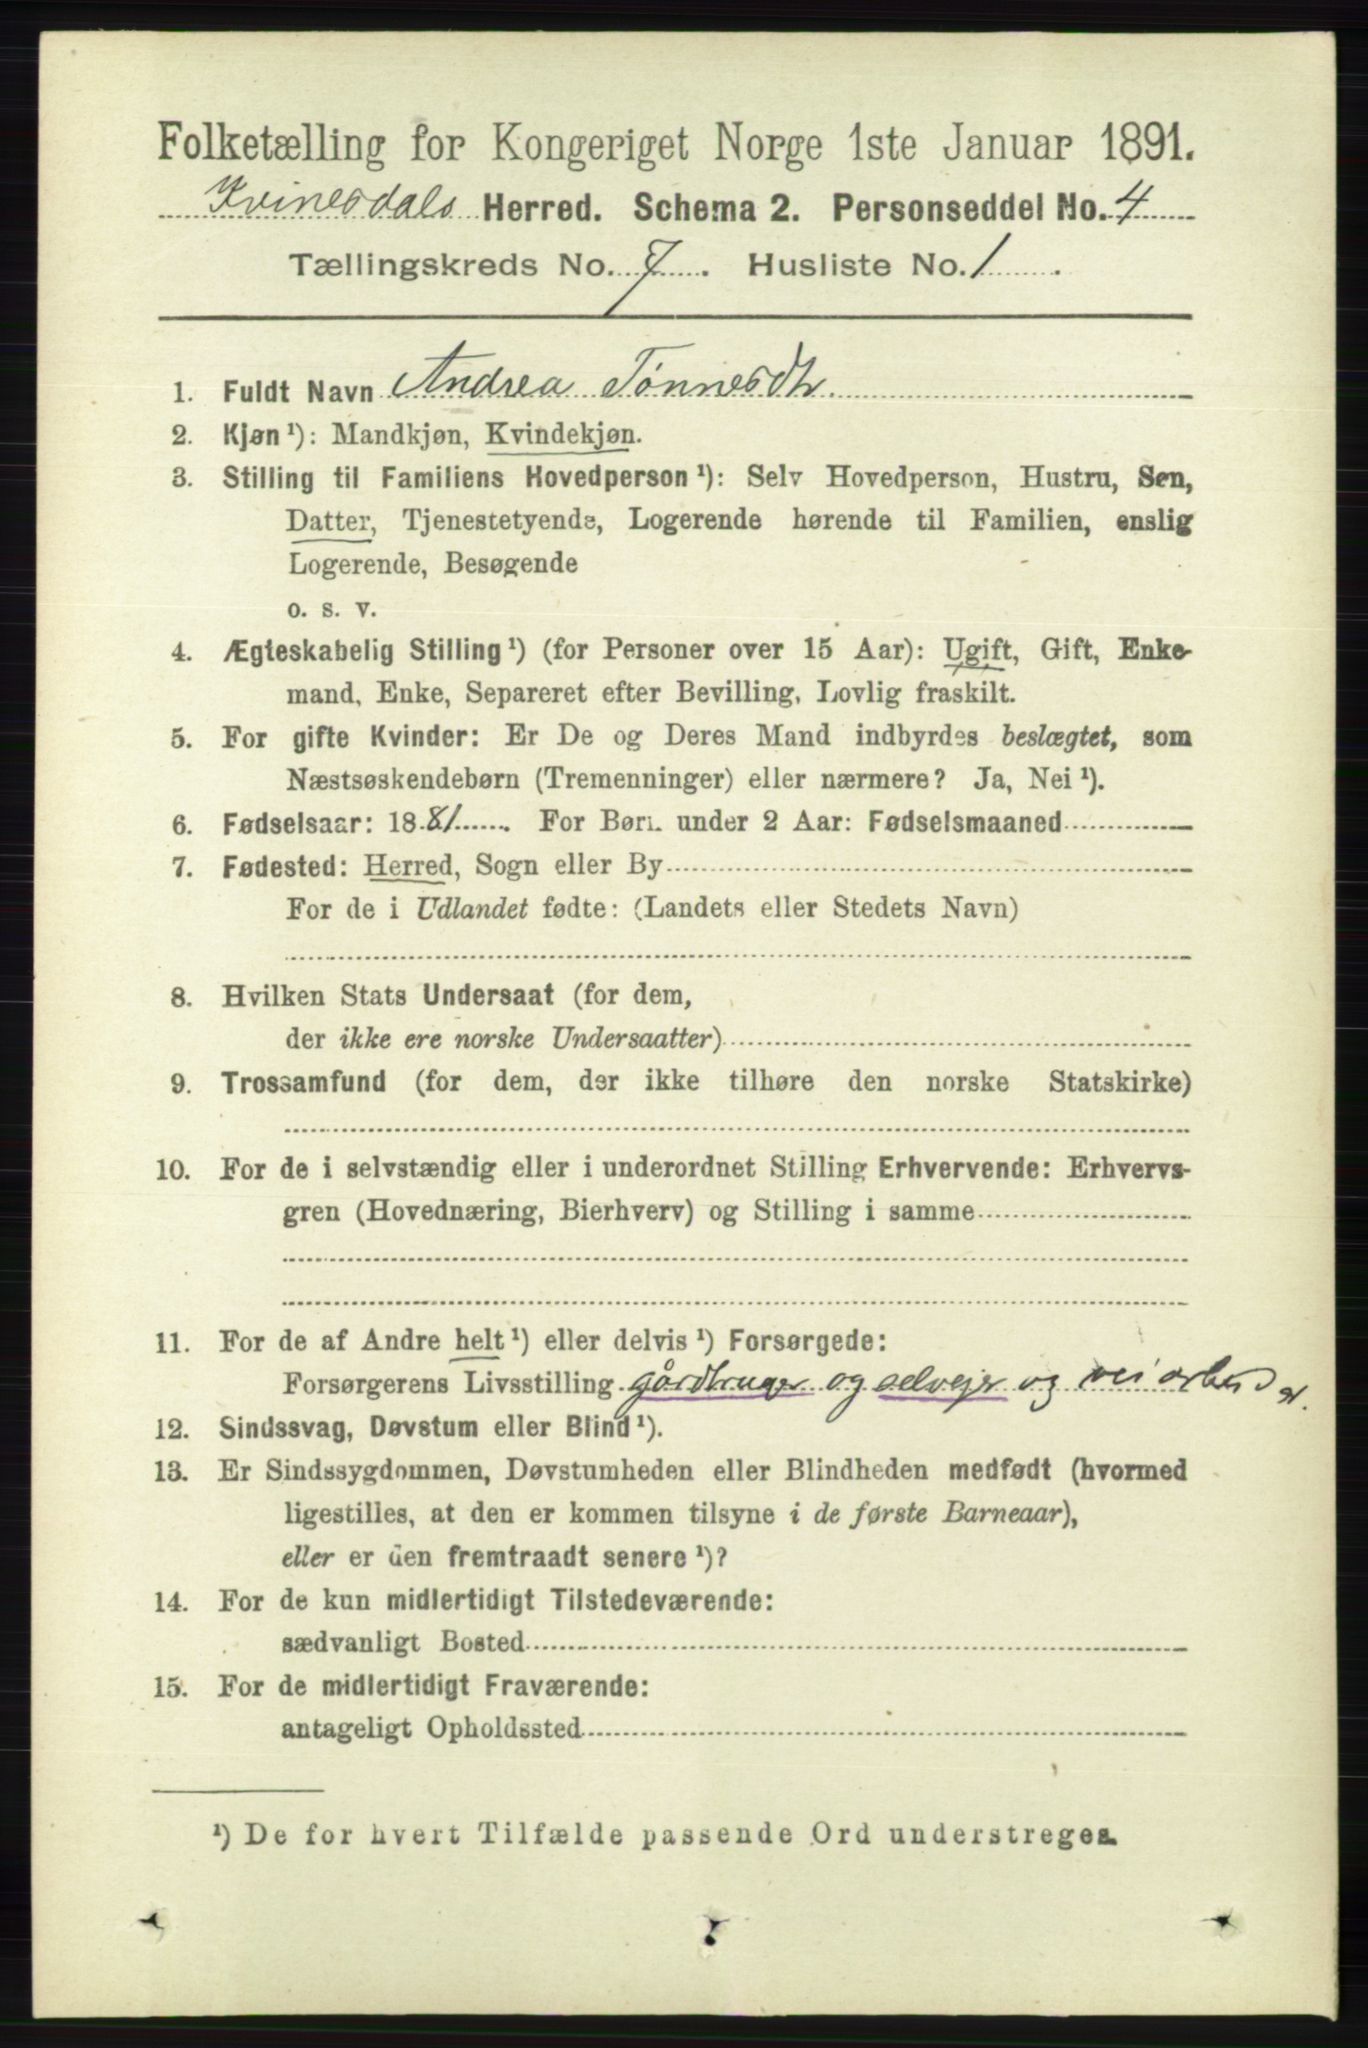 Folketælling for Kongeriget Norge 1ste Januar 1891.
Kvinesdals Herred. Schema 2. Personseddel No. 4
Tællingskreds No. 7. Husliste No. 1.
1. Fuldt Navn Andrea Tønnesdtr.
2. Kjøn ¹): Mandkjøn, Kvindekjøn.
3. Stilling til Familiens Hovedperson ¹): Selv Hovedperson, Hustru, Søn,
Datter, Tjenestetyende, Logerende hørende til Familien, enslig
Logerende, Besøgende
o. s. v.
4. Ægteskabelig Stilling ¹) (for Personer over 15 Aar): Ugift, Gift, Enke-
mand, Enke, Separeret efter Bevilling, Lovlig fraskilt.
5. For gifte Kvinder: Er De og Deres Mand indbyrdes beslægtet, som
Næstsøskendebørn (Tremenninger) eller nærmere? Ja, Nei ¹).
6. Fødselsaar: 1881. For Børn under 2 Aar: Fødselsmaaned
7. Fødested: Herred, Sogn eller By
For de i Udlandet fødte: (Landets eller Stedets Navn)
8. Hvilken Stats Undersaat (for dem,
der ikke ere norske Undersaatter)
9. Trossamfund (for dem, der ikke tilhøre den norske Statskirke)
10. For de i selvstændig eller i underordnet Stilling Erhvervende: Erhvervs-
gren (Hovednæring, Bierhverv) og Stilling i samme
11. For de af Andre helt ¹) eller delvis ¹) Forsørgede:
Forsørgerens Livsstilling gårdbruger og selvejer og vei arbeider.
12. Sindssvag, Døvstum eller Blind ¹).
13. Er Sindssygdommen, Døvstumheden eller Blindheden medfødt (hvormed
ligestilles, at den er kommen tilsyne i de første Barneaar),
eller er den fremtraadt senere ¹)?
14. For de kun midlertidigt Tilstedeværende:
sædvanligt Bosted
15. For de midlertidigt Fraværende:
antageligt Opholdssted
¹) De for hvert Tilfælde passende Ord understreges.